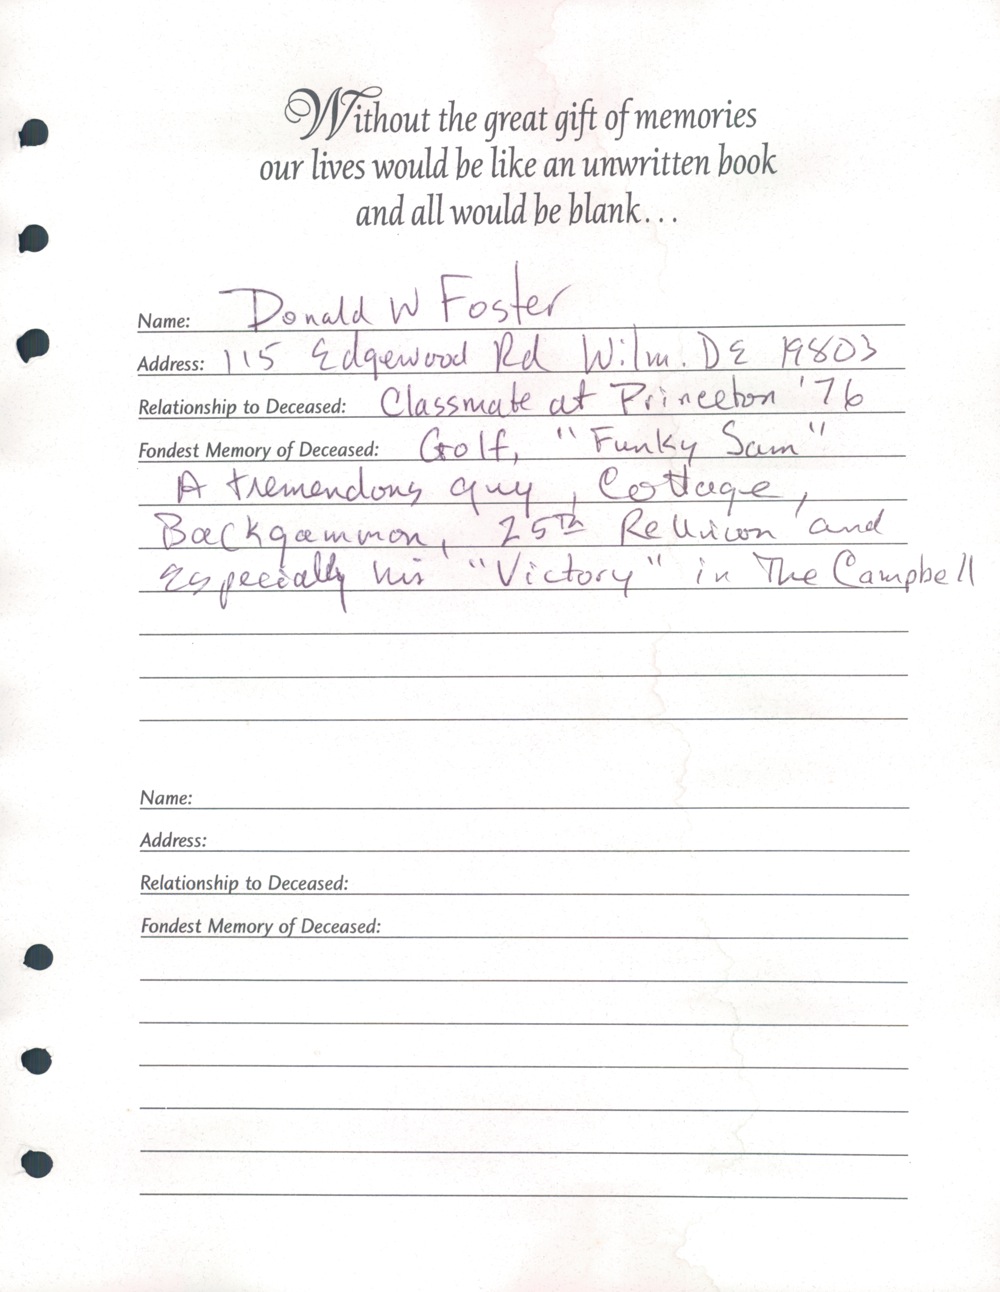 Without the great gift of memories
our lives would be like an unwritten book
and all would be blank...
Name: Donald W Foster
Address: 115 Edgewood Rd Wilm. DE 19803
Relationship to Deceased: Classmate at Princeton '76
Fondest Memory of Deceased: Golf, "Funky Sam"
A tremendous guy, Cottage,
Backgammon, 25th Reunion and
especially his "Victory" in The Campbell
Name:
Address:
Relationship to Deceased:
Fondest Memory of Deceased: